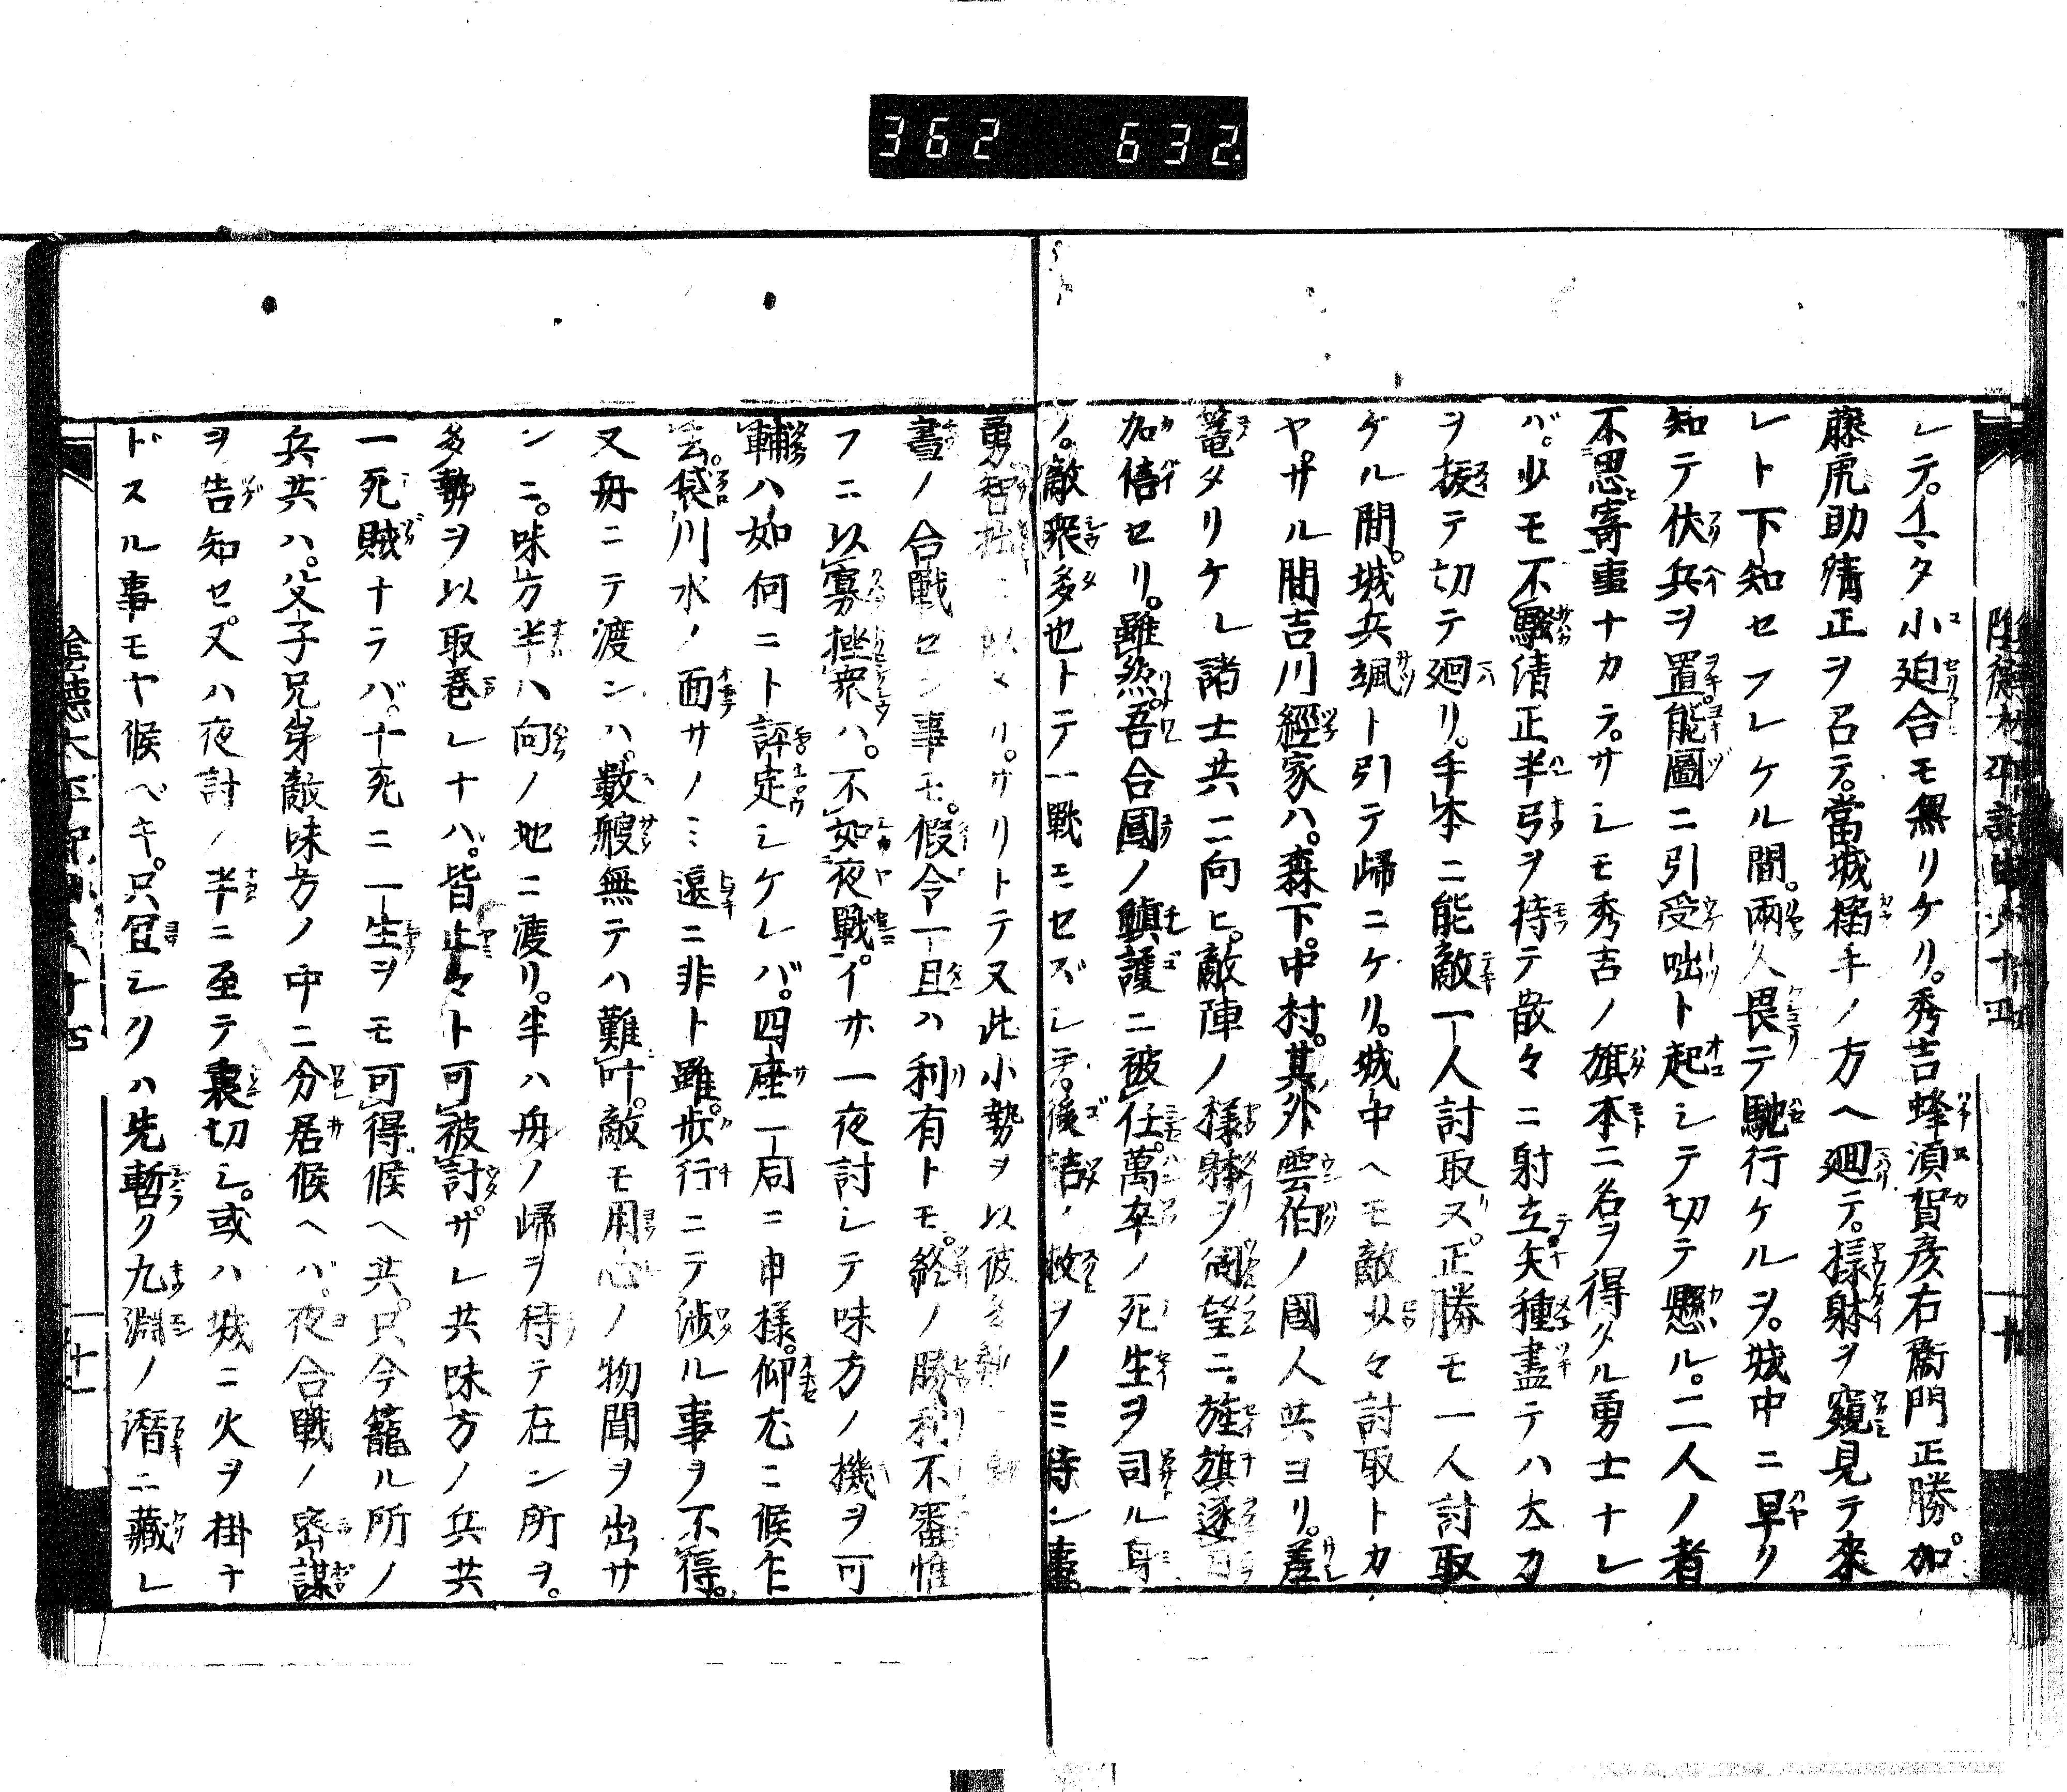 362 632
レテ。イマタ小迫合モ無リケリ。秀吉蜂湏賀彦右衞門正勝。加
藤虎助清正ヲ召テ。當城搦手ノ方ヘ廻テ。様躰ヲ窺見テ來
レト下知セラレケル間。兩人畏テ馳行ケルヲ。城中ニ早ク
知テ伏兵ヲ置。能圖ニ引受咄ト起シテ切テ懸ル。二人ノ者
不思寄事ナカラ。サレモ秀吉ノ旗本ニ名ヲ得タル勇士ナレ
バ。少モ不騒清正半弓ヲ持テ散々ニ射立矢種盡テハ太刀
ヲ拔テ切テ廻リ。手本ニ能敵一人討取ヌ。正勝モ一人討取
ケル間。城兵颯ト引テ歸ニケリ。城中ヘモ敵少々討取トカ
ヤ。サル間吉川經家ハ。森下。中村。其外雲伯ノ國人共ヨリ。差
篭タリケレ諸士共ニ向ヒ。敵陣ノ様躰ヲ伺望ニ。旌旗逐日
加倍セリ。雖然。吾合國ノ鎮護ニ被任。萬卒ノ死生ヲ司ル身
ノ。敵衆多也トテ一戰モセズシテ。後詰ノ救ヲノミ待ン事。
勇智拙ニ似タリ。サリトテ又此小勢ヲ以彼多勢
晝ノ合戰セン事モ。假令一旦ハ利有トモ。終ノ勝利不審惟
フニ以寡挫衆ハ。不如夜戰。イサ一夜討シテ味方ノ機ヲ可
輔ハ如何ニト評定シケレバ。四座一同ニ申様。仰尤ニ候乍
去。袋川水ノ面サノミ遠ニ非ト雖。歩行ニテ渉ル事ヲ不得。
又舟ニテ渡ンハ。數艘無テハ難叶。敵モ用心ノ物聞ヲ出サ
ンニ。味方半ハ向ノ地ニ渡リ。半ハ舟ノ歸ヲ待テ在ン所ヲ。
多勢ヲ以取巻レナハ。皆止々ト可被討。サレ共味方ノ兵共
一死賊ナラバ。十死ニ一生ヲモ可得候ヘ共。只今籠ル所ノ
兵共ハ。父子兄弟敵味方ノ中ニ分居候ヘバ。夜合戰ノ密謀
ヲ告知セ。又ハ夜討ノ半ニ至テ裏切シ。或ハ城ニ火ヲ掛ナ
ドスル事モヤ候ベキ。只宜シクハ先暫ク九淵ノ潛ニ藏レ